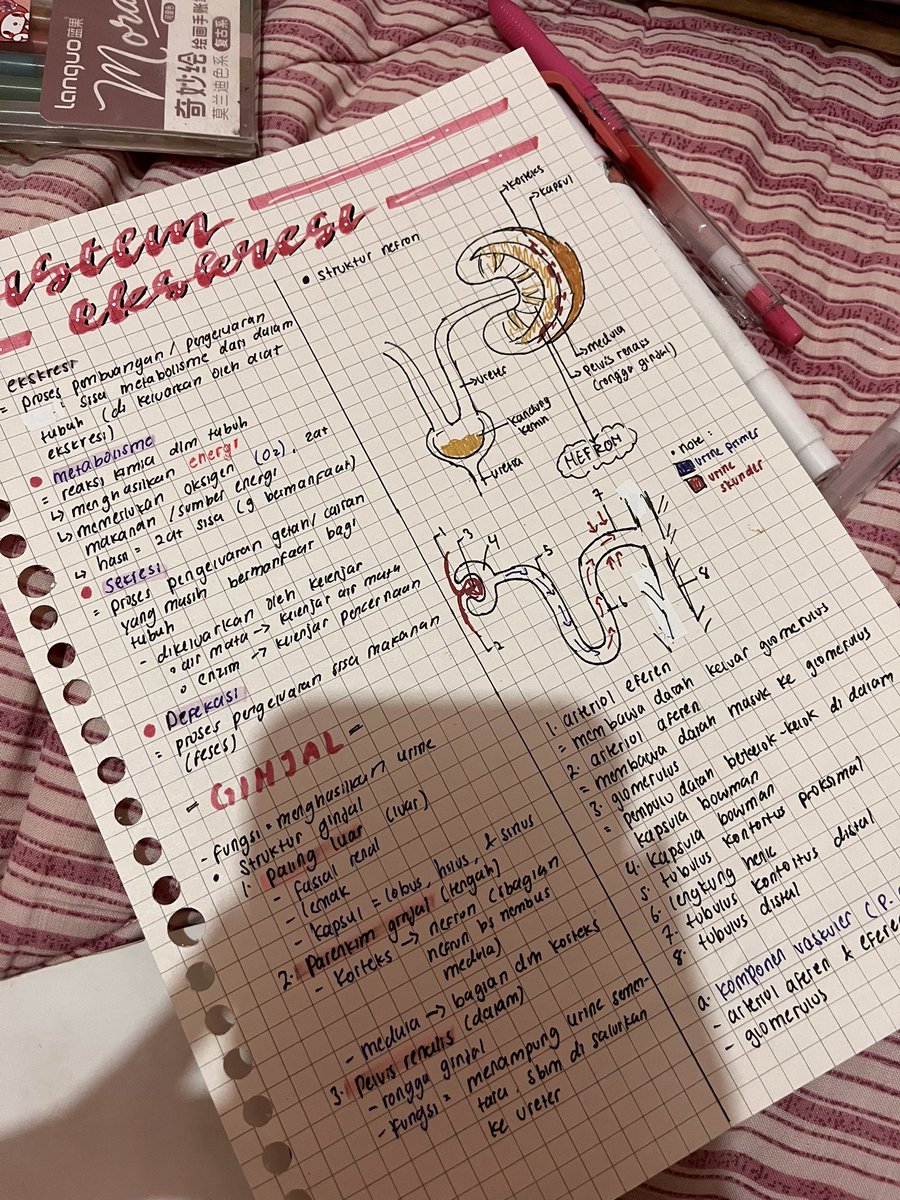 languo 蓝果
Mora
奇妙绘
绘画手账
莫兰迪色系
复古系
istem
eksresi
ekskresi
= proses pembuangan / pengeluaran
sisa metabolisme dari dalam
tubuh (di keluarkan oleh alat
ekskresi)
• metabolisme
= reaksi kimia dlm tubuh
↳ menghasilkan energi
↳ memerlukan oksigen (O2), zat
makanan / sumber energi
↳ hasil = zat sisa (g bermanfaat)
• sekresi
= proses pengeluaran getah / cairan
yang masih bermanfaat bagi
tubuh
- dikeluarkan oleh kelenjar
° air mata → kelenjar air mata
° enzim → kelenjar pencernaan
• Defekasi
= proses pengeluaran sisa makanan
(feses)
- GINJAL -
- fungsi = menghasilkan urine
• Struktur ginjal
1. Paling luar (luar)
- fascial renal
- lemak
- kapsul = lobus, hilus, & sinus
2. Parenkim ginjal (tengah)
- Korteks → nefron (sbagian
nefron bs nembus
medula)
- medula → bagian dlm korteks
3. Pelvis renalis (dalam)
- rongga ginjal
- fungsi = menampung urine semen-
tara sblm di salurkan
ke ureter
• Struktur nefron
→ korteks
→ kapsul
→ medula
→ pelvis renalis
(rongga ginjal)
→ ureter
→ kandung
kemih
→ uretra
NEFRON
• note :
urine primer
urine
skunder
1
3
4
5
7
6
8
2
1. arteriol eferen
= membawa darah keluar glomerulus
2. arteriol aferen
= membawa darah masuk ke glomerulus
3. glomerulus
= pembulu darah berkelok-kelok di dalam
kapsula bowman
4. kapsula bowman
5. tubulus kontortus proksimal
6. lengkung henle
7. tubulus kontoitus distal
8. tubulus distal
a. komponen vaskuler (P.
- arteriol aferen & eferen
- glomerulus